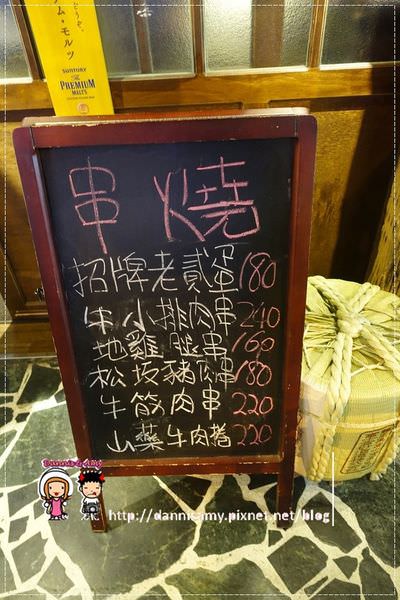 SUNTORY
THE
PREMIUM
MALT'S
串燒
招牌老貳蛋180
牛小排肉串240
地雞腿串160
松坂豬肉串180
牛筋肉串220
山藥牛肉捲220
Dannis & Amy
http://dannisamy.pixnet.net/blog